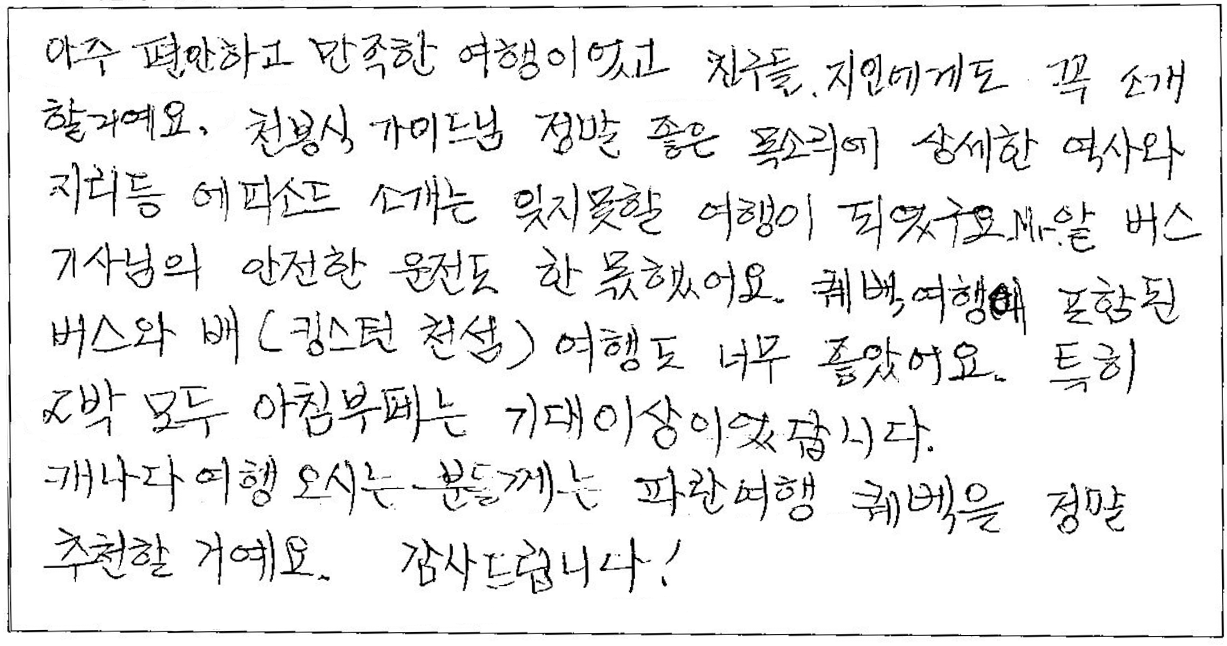 아주 편안하고 만족한 여행이었고 친구들, 지인에게도 꼭 소개
할거예요. 천봉식 가이드님 정말 좋은 목소리에 상세한 역사와
지리등 에피소드 소개는 잊지못할 여행이 되였구요. Mr.알 버스
기사님의 안전한 운전도 한 몫했어요. 퀘벡여행에 포함된
버스와 배 (킹스턴 천섬) 여행도 너무 좋았어요. 특히
2박 모두 아침부페는 기대이상이었답니다.
캐나다여행 오시는 분들께는 파란여행 퀘벡을 정말
추천할 거예요. 감사드립니다!